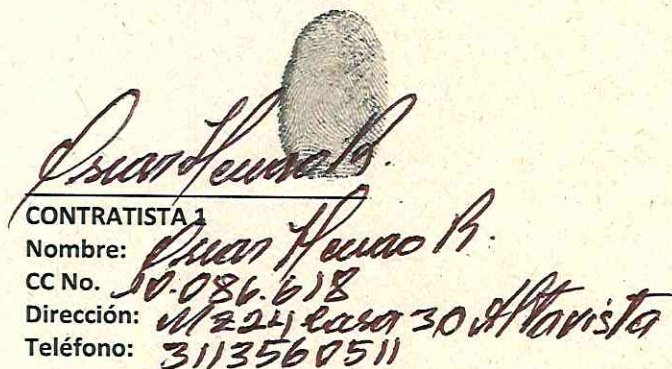 Oscar Henao R.
CONTRATISTA 1
Nombre: Oscar Henao R.
CC No. 10.086.618
Dirección: Mz 24 casa 30 Altavista
Teléfono: 3113560511